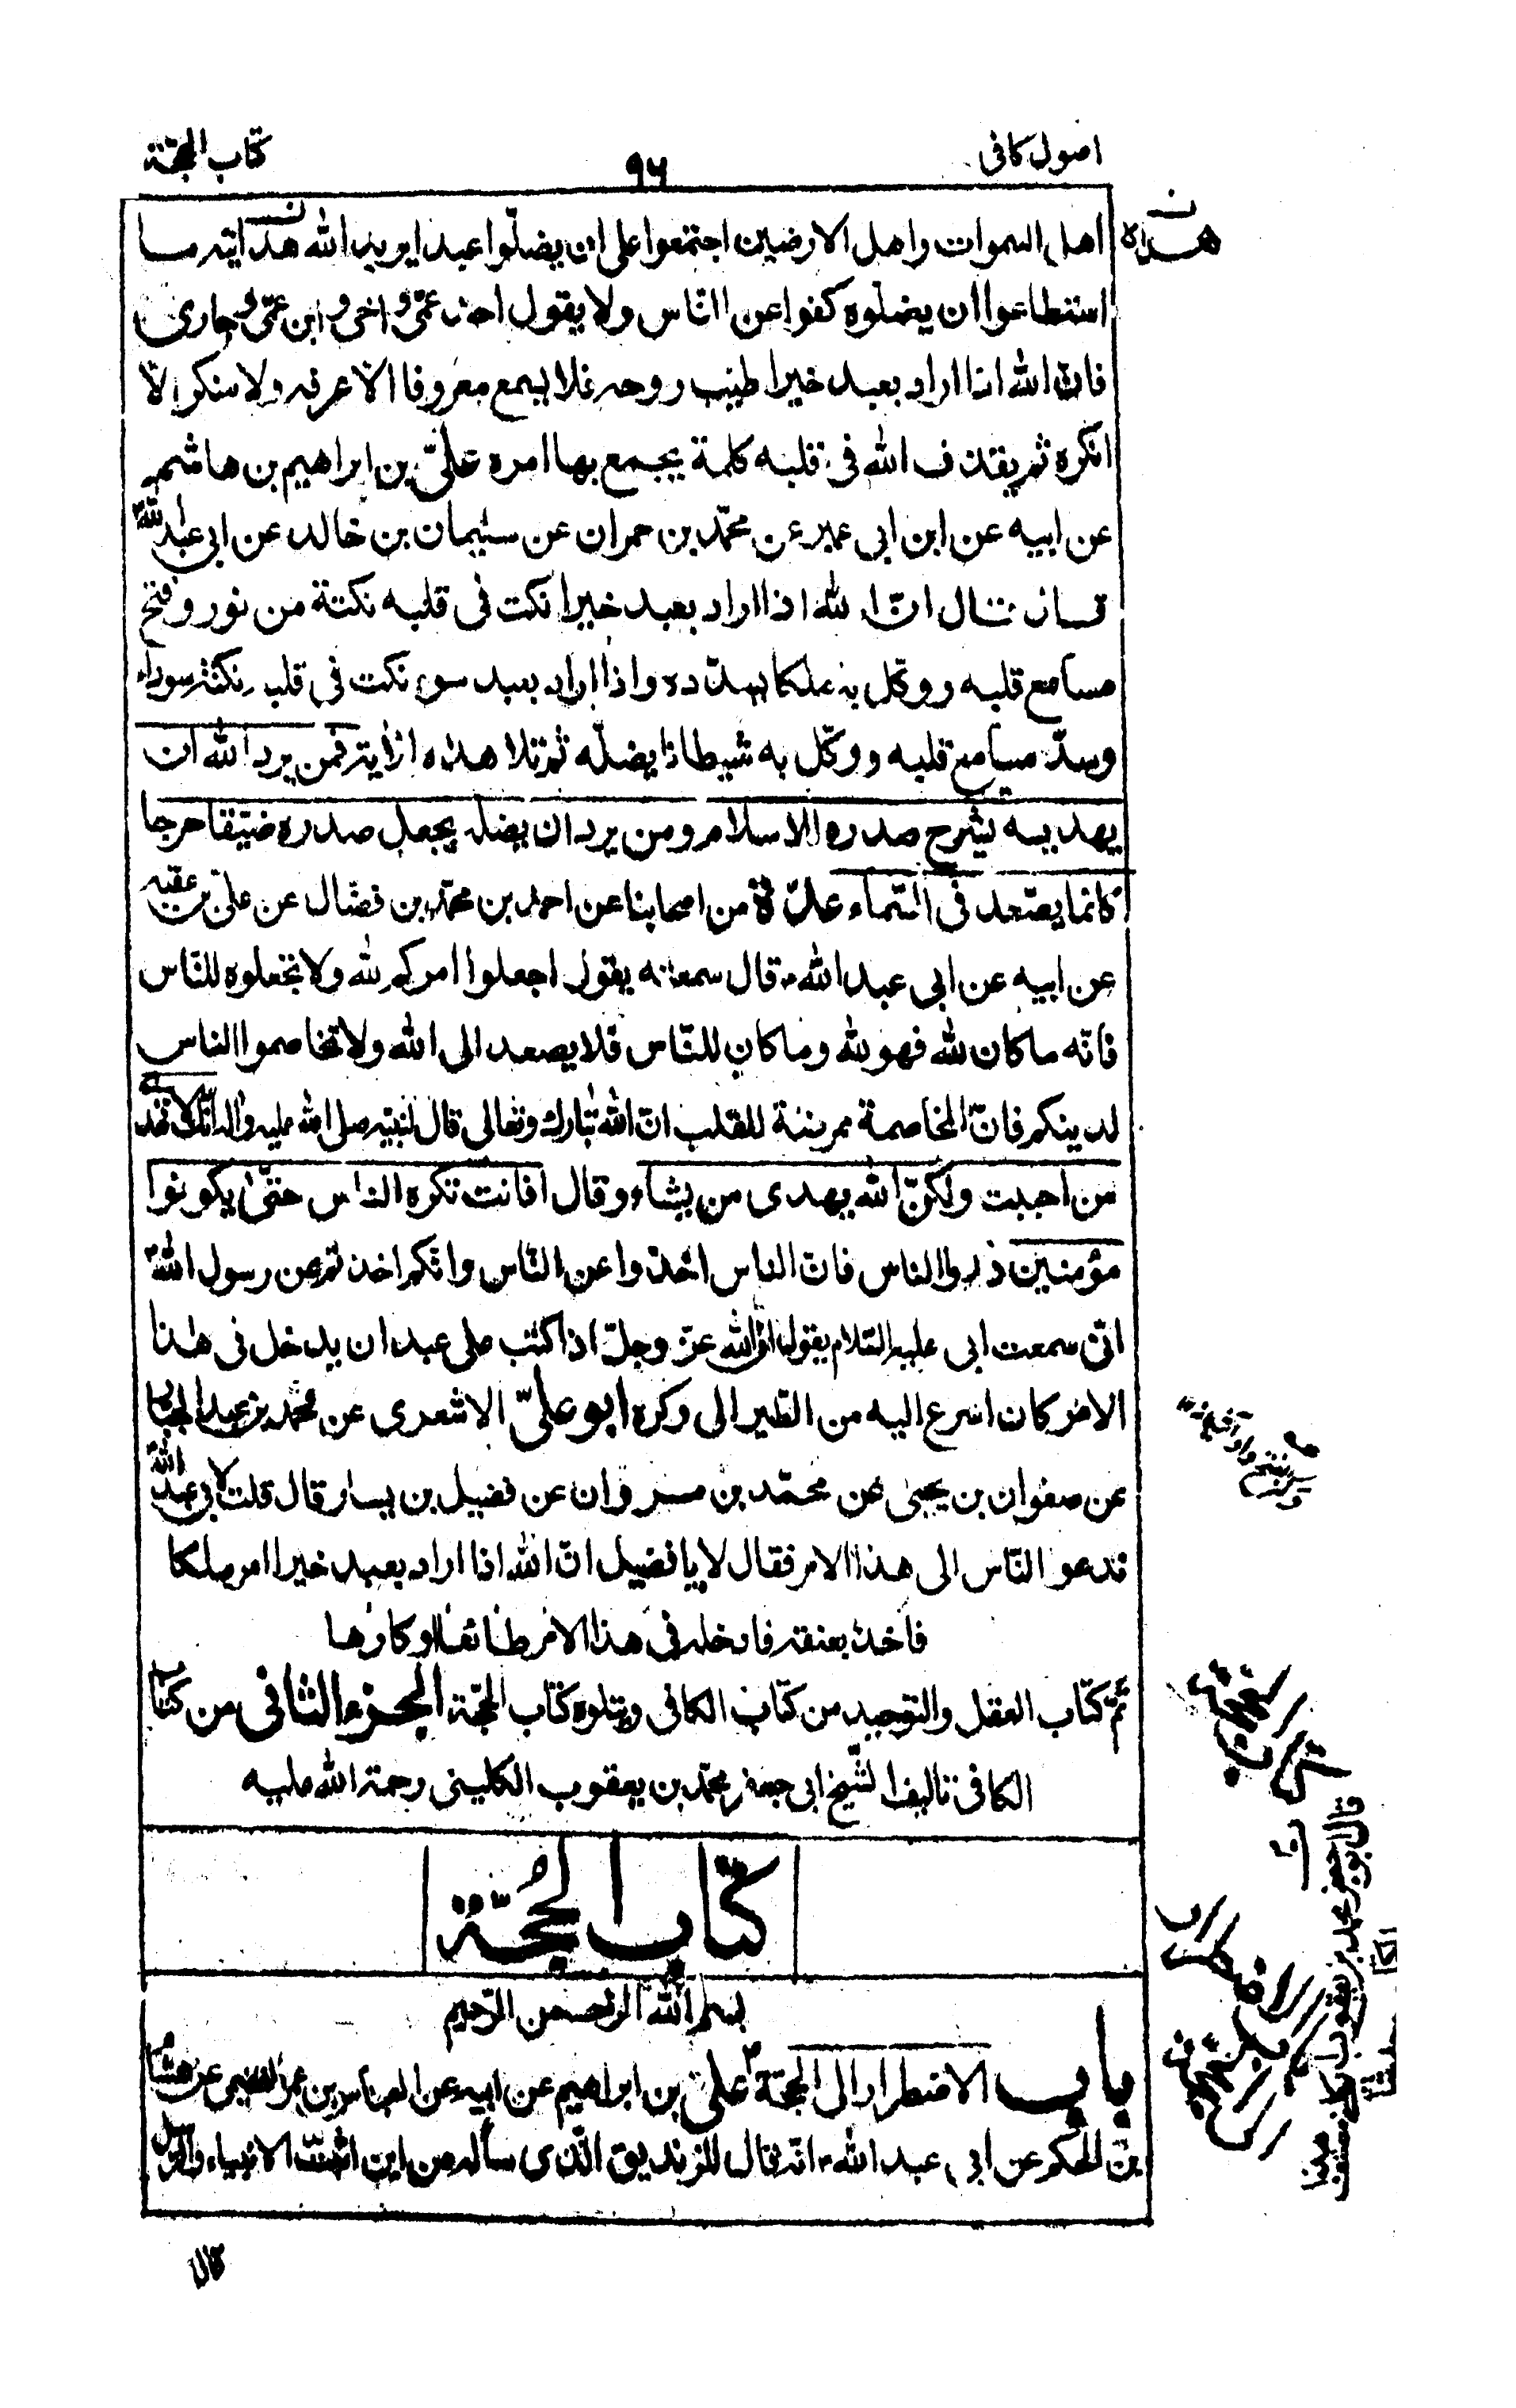 اصول كافى
٩٦
كتاب الحجّة
اهل السموات واهل الارضين اجتمعوا على ان يضلّوا عبدا يريد الله هدايته ما
هداه
استطاعوا ان يضلّوه كفوا عن النّاس ولا يقول احد عمّى واخى وابن عمّى وجارى
فانّ الله اذا اراد بعبد خيرا طيّب روحه فلا يسمع معروفا الّا عرفه ولا منكرا الّا
انكره ثم يقذف الله فى قلبه كلمة يجمع بها امره علىّ بن ابراهيم بن هاشم
عن ابيه عن ابن ابى عمير عن محمّد بن حمران عن سليمان بن خالد عن ابى عبد الله
قال قال انّ الله اذا اراد بعبد خيرا نكت فى قلبه نكتة من نور وفتح
مسامع قلبه ووكّل به ملكا يسدّده واذا اراد بعبد سوء نكت فى قلبه نكتة سوداء
وسدّ مسامع قلبه ووكّل به شيطانا يضلّه ثم تلا هذه الاية فمن يرد الله ان
يهديه يشرح صدره للاسلام ومن يرد ان يضله يجعل صدره ضيّقا حرجا
كانما يصّعد فى السّماء عدّة من اصحابنا عن احمد بن محمّد بن فضّال عن علىّ بن عقبه
عن ابيه عن ابى عبد الله قال سمعته يقول اجعلوا امركم لله ولا تجعلوه للنّاس
فانّه ما كان لله فهو لله وما كان للنّاس فلا يصعد الى الله ولا تخاصموا الناس
لدينكم فانّ المخاصمة ممرضة للقلب انّ الله تبارك وتعالى قال لنبيّه صلى الله عليه واله انّك لا تهدى
من احببت ولكنّ الله يهدى من يشاء وقال افانت تكره الناس حتّى يكونوا
مؤمنين ذروا الناس فانّ الناس اخذوا عن النّاس وانّكم اخذتم عن رسول الله
انّى سمعت ابى عليه السّلام يقول انّ الله عزّ وجلّ اذا كتب على عبد ان يدخل فى هذا
الامر كان اسرع اليه من الطّير الى وكره ابو علىّ الاشعرى عن محمّد بن عبد الجبّار
عن صفوان بن يحيى عن محمّد بن مروان عن فضيل بن يسار قال قلت لابى عبد الله
ندعو النّاس الى هذا الامر فقال لا يا فضيل انّ الله اذا اراد بعبد خيرا امر ملكا
فاخذ بعنقه فادخله فى هذا الامر طائعا او كارها
تمّ كتاب العقل والتوحيد من كتاب الكافى ويتلوه كتاب الحجّة الجزء الثانى من كتاب
الكافى تاليف الشّيخ ابى جعفر محمّد بن يعقوب الكلينى رحمة الله عليه
كتاب الحجّة
بسم الله الرّحمن الرّحيم
باب الاضطرار الى الحجّة علىّ بن ابراهيم عن ابيه عن العباس بن عمر الفقيمى عن هشام
بن الحكم عن ابى عبد الله انّه قال للزنديق الّذى سأله من اين اثبتّ الانبياء والرسل
قال